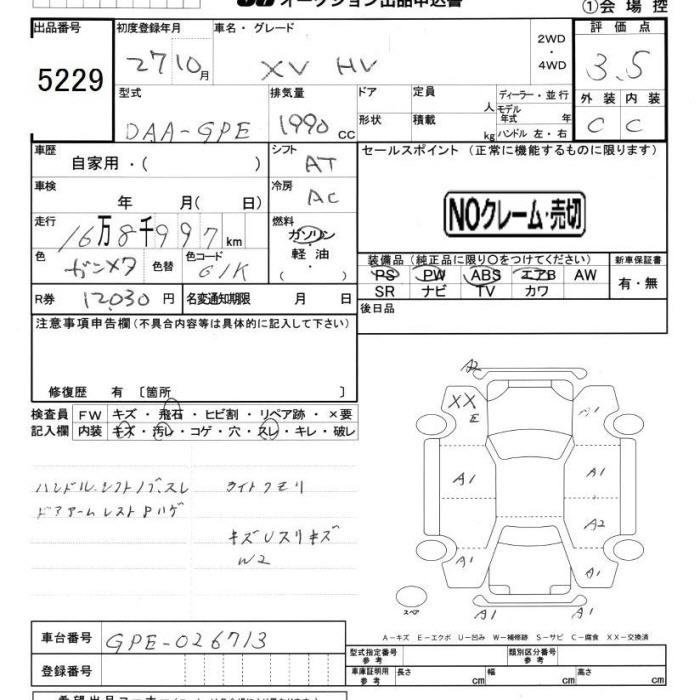 オークション出品申込書
①会場控
出品番号 初度登録年月 車名・グレード 評価点
5229 27 10月 XV HV 2WD・4WD 3.5
型式 排気量 ドア 定員 人 ディーラー・並行 外装 内装
DAA-GPE 1990 cc 形状 積載 kg モデル年式 年 C C
ハンドル 左・右
車歴 自家用・( ) シフト AT セールスポイント (正常に機能するものに限ります)
車検 年 月( 日) 冷房 AC
NOクレーム・売切
走行 16万8千997km 燃料 ガソリン・軽油・( )
色 ガンメタ 色替 色コード 61K
装備品(純正品に限り○をつけてください) 新車保証書
PS PW ABS エアB AW 有・無
SR ナビ TV カワ
R券 12030円 名変通知期限 月 日
後日品
注意事項申告欄(不具合内容等は具体的に記入して下さい)
修復歴 有 〔箇所 〕
検査員 FW キズ・飛石・ヒビ割・リペア跡・×要
記入欄 内装 キズ・汚レ・コゲ・穴・スレ・キレ・破レ
ハンドル、シフトノブ、スレ ライトクモリ
ドアアームレスト ハゲ
キズ Uスリキズ
W2
A2
XX
E
A1
A1 A1
A2
A1 A1
A1
スペア
A-キズ E-エクボ U-凹み W-補修跡 S-サビ C-腐食 XX-交換済
車台番号 GPE-026713
型式指定番号 参考 類別区分番号 参考
登録番号 車庫証明用 参考 長さ cm 幅 cm 高さ cm